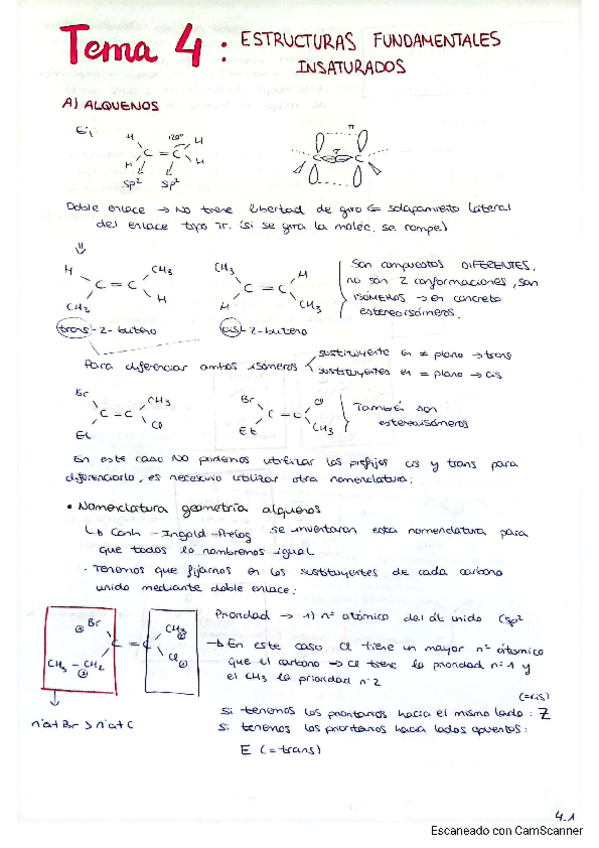 Tema 4 : ESTRUCTURAS FUNDAMENTALES
INSATURADOS
A) ALQUENOS
Ej:
H 120º H
C = C
H H
sp² sp²
π
σ
Doble enlace → No tiene libertad de giro ⇐ solapamiento lateral
del enlace tipo π. (si se gira la moléc. se rompe)
⇓
H CH₃
C = C
CH₃ H
CH₃ H
C = C
H CH₃
Son compuestos DIFERENTES,
no son 2 conformaciones, son
ISÓMEROS → en concreto
estereoisómeros.
trans-2-buteno
cis-2-buteno
Para diferenciar ambos isómeros
sustituyente en ≠ plano → trans
sustituyentes en = plano → cis
Br CH₃
C = C
Et Cl
Br Cl
C = C
Et CH₃
También son
estereoisómeros
En este caso NO podemos utilizar los prefijos cis y trans para
diferenciarlo, es necesario utilizar otra nomenclatura:
• Nomenclatura geometría alquenos
↳ Cahn - Ingold - Prelog se inventaron esta nomenclatura para
que todos lo nombremos igual
- Tenemos que fijarnos en los sustituyentes de cada carbono
unido mediante doble enlace:
① Br CH₃ ②
C = C
CH₃ - CH₂ ② Cl ①
Prioridad → 1) nº atómico del át unido Csp²
→ En este caso Cl tiene un mayor nº atómico
que el carbono → Cl tiene la prioridad nº 1 y
el CH₃ la prioridad nº 2
nº at Br > nº at C
(=cis)
si tenemos los prioritarios hacia el mismo lado : Z
si tenemos los prioritarios hacia lados opuestos :
E (=trans)
4.1
Escaneado con CamScanner